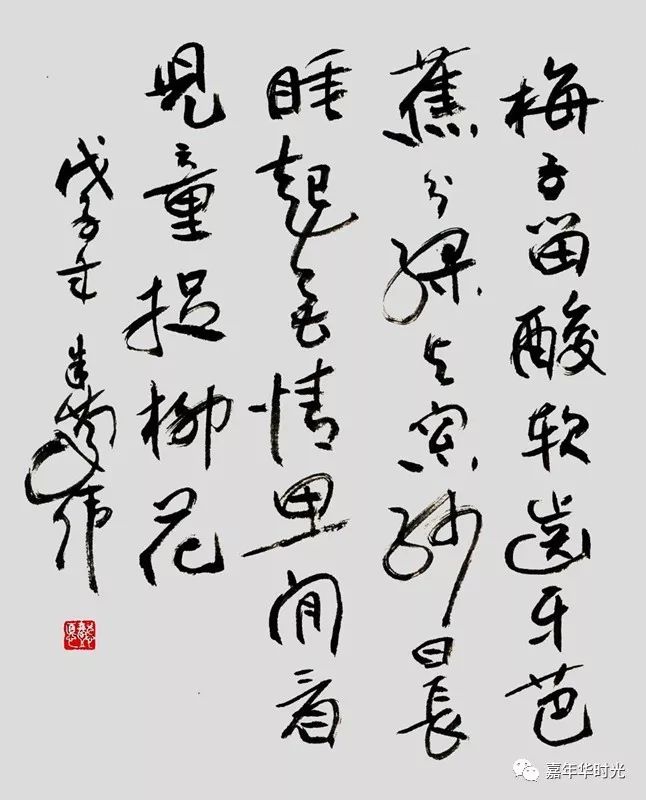 梅子留酸软齒牙芭
蕉分绿与窗纱日長
睡起無情思闲看
兒童捉柳花
戊子年 朱
嘉年华时光